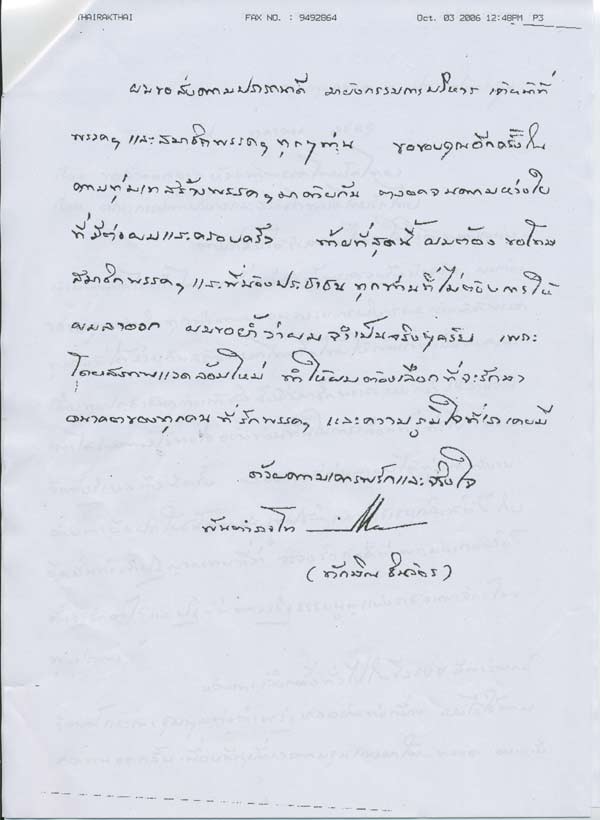 THAIRAKTHAI FAX NO. : 9492864 Oct. 03 2006 12:48PM P3
ผมขอส่งความปรารถนาดี มายังกรรมการบริหาร เจ้าหน้าที่
พรรคฯ และสมาชิกพรรคฯ ทุกๆท่าน ขอขอบคุณอีกครั้งใน
ความทุ่มเทสร้างพรรคฯ มาด้วยกัน ตลอดจนความห่วงใย
ที่มีต่อผมและครอบครัว ท้ายที่สุดนี้ ผมต้อง ขอโทษ
สมาชิกพรรคฯ และพี่น้องประชาชน ทุกท่านที่ไม่ต้องการให้
ผมลาออก ผมขอย้ำว่าผม จำเป็นจริงๆครับ เพราะ
โดยสภาพแวดล้อมใหม่ ทำให้ผมต้องเลือกที่จะรักษา
อนาคตของทุกคน ที่รักพรรคฯ และความภูมิใจที่เราเคยมี
ด้วยความเคารพรักและจริงใจ
พันตำรวจโท
(ทักษิณ ชินวัตร)